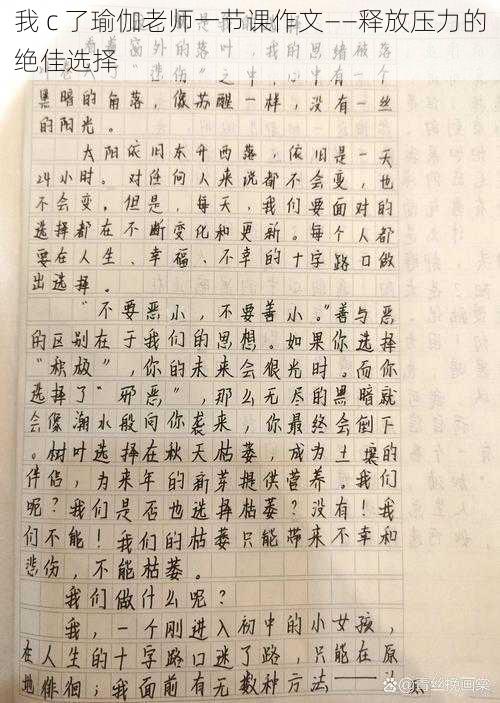 我 c 了瑜伽老师一节课作文——释放压力的
绝佳选择
黑暗的角落，像苏醒一样，没有一丝
的阳光。
太阳依旧东升西落，依旧是一天
24小时。对任何人来说都不会变，也
不会变，但是，每天，我们要面对的
选择都在不断变化和更新。每个人都
要在人生、幸福、不幸的十字路口做
出选择。
"不要恶小，不要善小。"善与恶
的区别在于我们的思想。如果你选择
"积极"，你的未来会很光时。而你
选择了"邪恶"，那么无尽的黑暗就
会像潮水般向你袭来，你最终会倒下
。树叶选择在秋天枯萎，成为土壤的
伴侣，为来年的新芽提供营养。我们
呢？我们是否也选择枯萎？没有！我
们不能！我们的枯萎只能带来不幸和
悲伤，不能枯萎。
我们做什么呢？
我，一个刚进入初中的小女孩，
在人生的十字路口迷了路，只能在原
地徘徊；我面前有无数种方法——